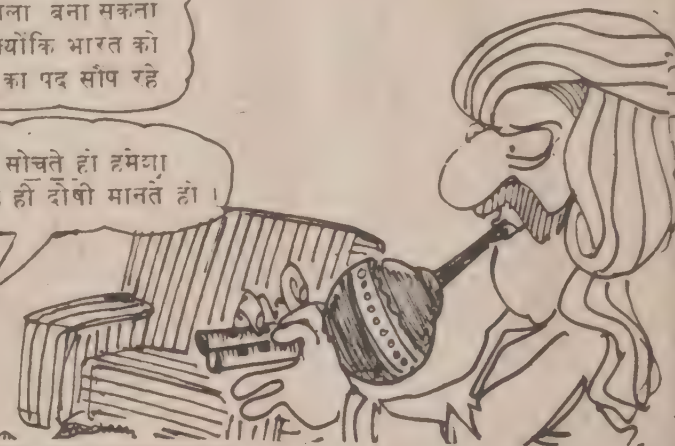 ला बना सकता
क्योंकि भारत को
का पद सौंप रहे
सोचते हो हमेशा
ही दोषी मानते हो ।